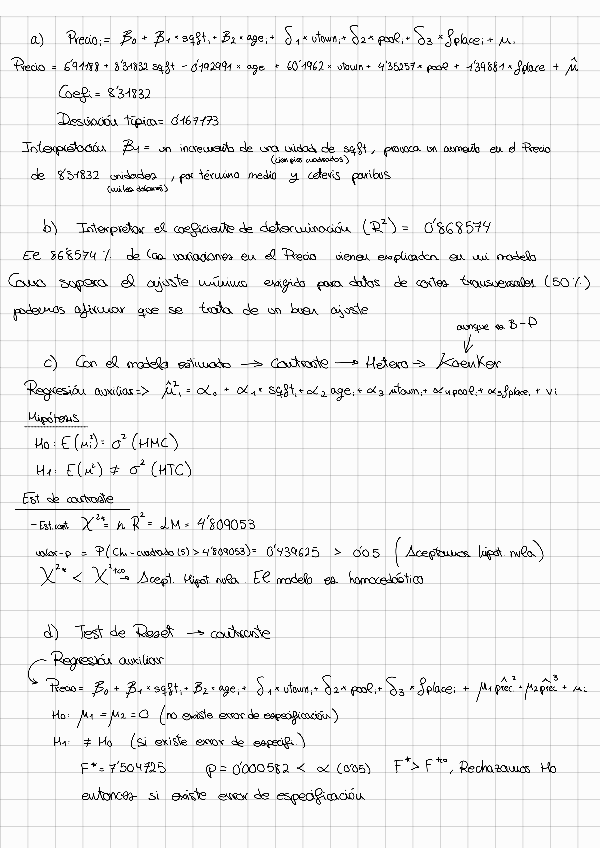 a) Precioᵢ = β₀ + β₁ * sqftᵢ + β₂ * ageᵢ + δ₁ * utownᵢ + δ₂ * poolᵢ + δ₃ * fplaceᵢ + μᵢ
Precio = 6'91188 + 8'31832 sqft - 0'192991 * age + 60'1962 * utown + 4'35257 * pool + 1'39881 * fplace + μ̂
Coefi = 8'31832
Desviación típica = 0'167173
Interpretación β₁ = un incremento de una unidad de sqft, provoca un aumento en el Precio
(cien pies cuadrados)
de 8'31832 unidades, por término medio y ceteris paribus
(miles dólares)
b) Interpretar el coeficiente de determinación (R²) = 0'868574
El 86'8574 % de las variaciones en el Precio vienen explicadas en mi modelo
Como supera el ajuste mínimo exigido para datos de cortes transversales (50 %)
podemos afirmar que se trata de un buen ajuste
aunque es B-P
c) Con el modelo estimado → Contraste → Hetero → Koenker
Regresión auxiliar => μ̂ᵢ² = α₀ + α₁ * sqftᵢ + α₂ ageᵢ + α₃ utownᵢ + α₄ poolᵢ + α₅ fplaceᵢ + vᵢ
Hipótesis
H₀: E(μᵢ²) = σ² (HMC)
H₁: E(μ²) ≠ σ² (HTC)
Est de contraste
- Est.cont χ²* = n R² = LM = 4'809053
valor-p = P(Chi-cuadrado(5) > 4'809053) = 0'439625 > 0'05 (Aceptamos hipot nula)
χ²* < χ²ᵗᶜᵒ → Acept. Hipot nula. El modelo es homocedástico
d) Test de Reset → contraste
Regresión auxiliar
Precio = β₀ + β₁ * sqftᵢ + β₂ * ageᵢ + δ₁ * utownᵢ + δ₂ * poolᵢ + δ₃ * fplaceᵢ + μ₁ preĉ² + μ₂ preĉ³ + μᵢ
H₀: μ₁ = μ₂ = 0 (no existe error de especificación)
H₁: ≠ H₀ (si existe error de especifi.)
F* = 7'504725 p = 0'000582 < α (0'05) F* > Fᵗᶜᵒ, Rechazamos H₀
entonces si existe error de especificación